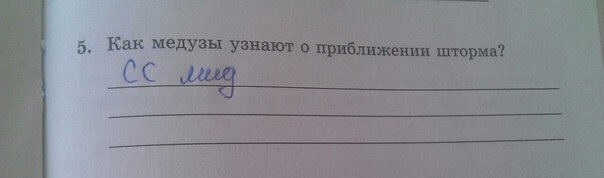 5. Как медузы узнают о приближении шторма?
СС мид